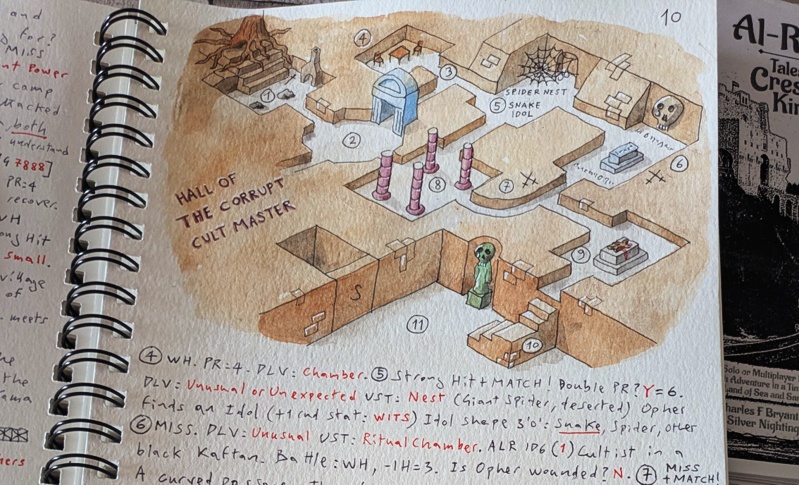 and
for?
MISS
nt Power
camp
attacked.
both
understand
[G 7888]
PR=4
recover.
WH
ong Hit
small.
village
of
meets
the
the
ama
10
4
3
1
2
SPIDER NEST
5 SNAKE
IDOL
6
7
8
HALL OF
THE CORRUPT
CULT MASTER
9
S
11
10
4 WH. PR=4. DLV: Chamber. 5 Strong Hit + MATCH! Double PR? Y=6.
DLV: Unusual or Unexpected UST: Nest (Giant Spider, deserted) Opher
finds an Idol (+1 rnd stat: WITS) Idol shape 3'o': Snake, Spider, other
6 MISS. DLV: Unusual UST: Ritual Chamber. ALR 1D6 (1) Cultist in a
black Kaftan. Battle: WH, -1H=3. Is Opher wounded? N. 7 MISS
+ MATCH!
A curved
Al-R
Tales
Cres
Kin
Solo or Multiplayer
Adventure in a Tim
Land of Sea and San
harles F Bryant
Silver Nighting